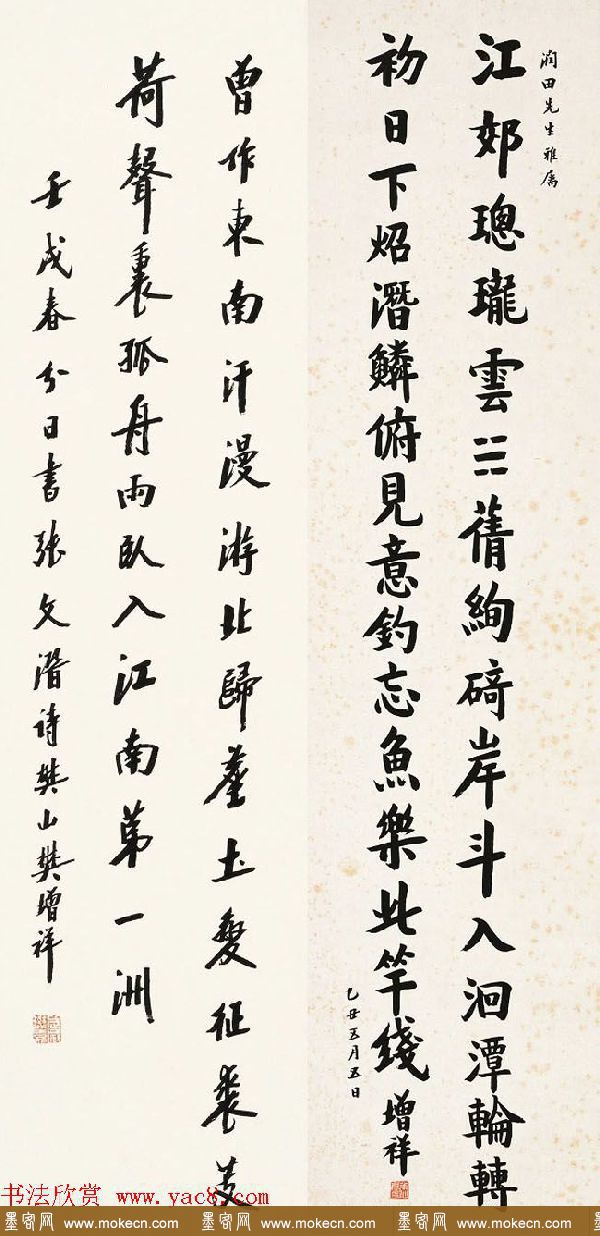 潤田先生雅屬
江郊璁瓏雲☵蒨絢碕岸斗入洄潭輪轉
初日下炤潛鱗俯見意釣忘魚樂此竿綫
增祥
乙丑五月五日
曾作東南汗漫游北歸塵土變征裘芰
荷聲裏孤舟雨臥入江南第一洲
壬戌春分日書張文潛詩樊山樊增祥
书法欣赏 www.yac8.com
墨客网 www.mokecn.com 墨客网 www.mokecn.com 墨客网 www.mokecn.com